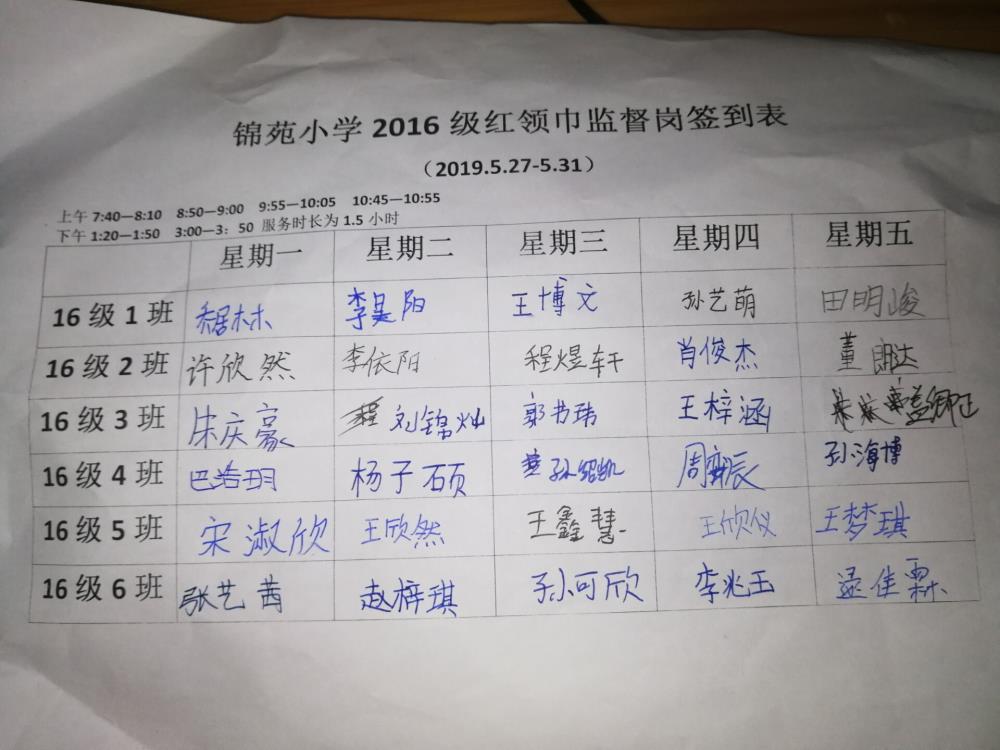 锦苑小学2016级红领巾监督岗签到表
（2019.5.27-5.31）
上午7:40—8:10 8:50—9:00 9:55—10:05 10:45—10:55
下午1:20—1:50 3:00—3：50 服务时长为1.5小时
星期一 星期二 星期三 星期四 星期五
16级1班 李昊阳 王博文 孙艺萌 田明峻
16级2班 许欣然 李依阳 程煜轩 肖俊杰 董
16级3班 宋庆豪 刘锦灿 郭书玮 王梓涵
16级4班 杨子硕 孙绍凯 周奕辰 孙海博
16级5班 宋淑欣 王欣然 王鑫慧 王欣仪 王梦琪
16级6班 张艺茜 赵梓琪 孙可欣 李兆玉 逯佳霖